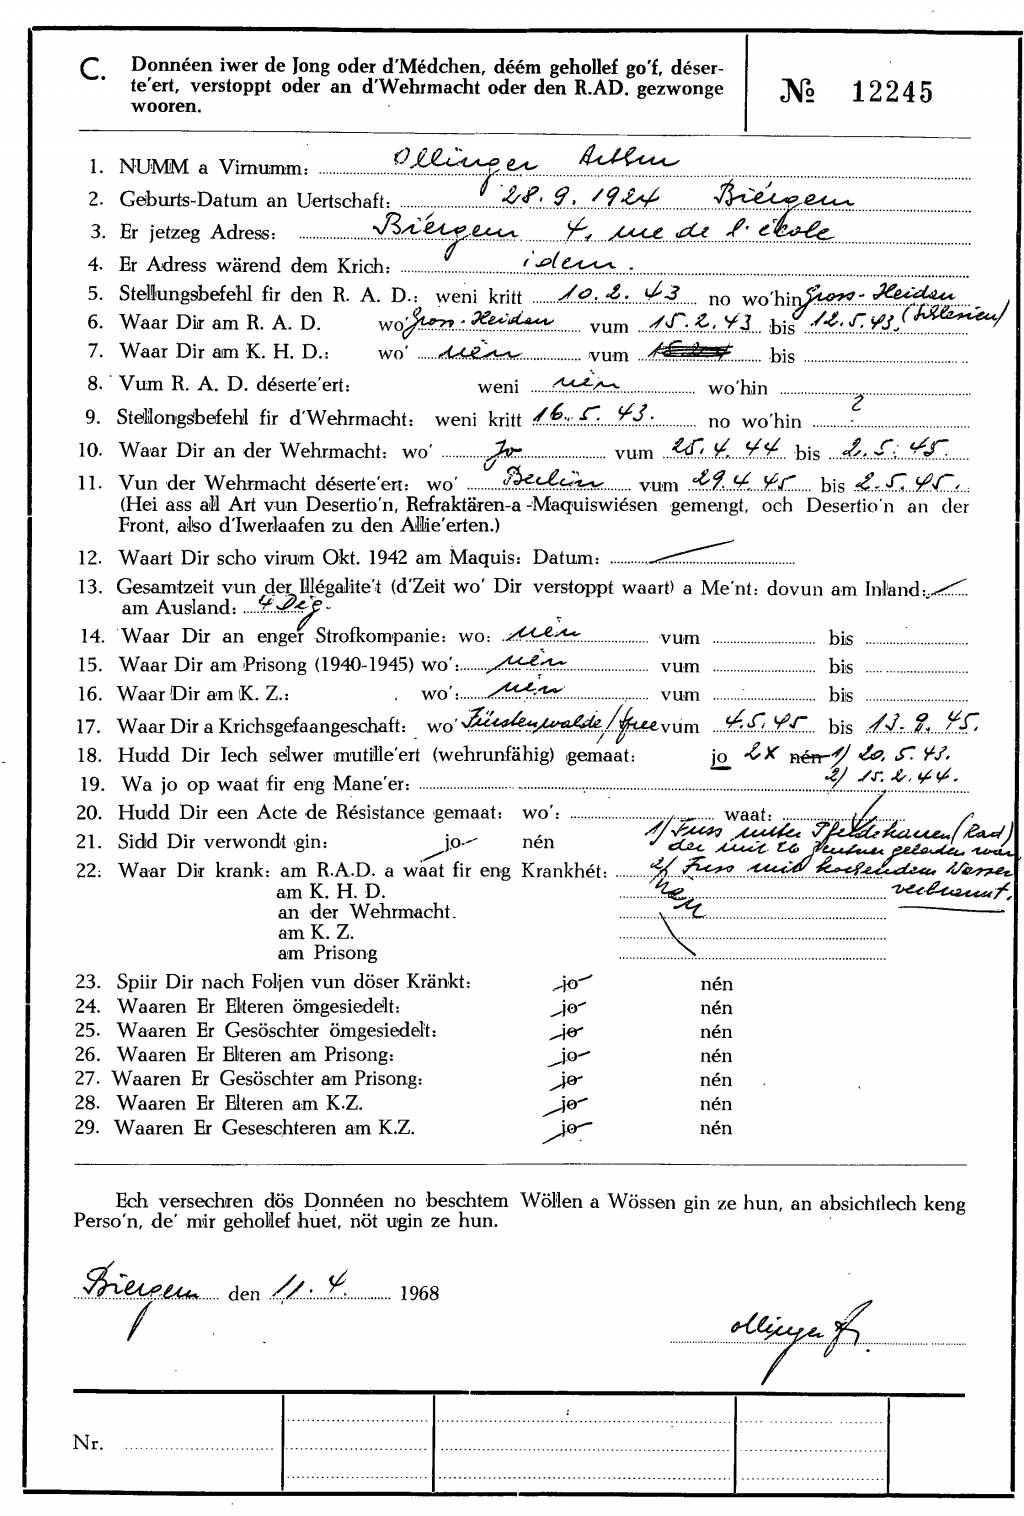 C. Donnéen iwer de Jong oder d'Médchen, déém gehollef go'f, déser-
te'ert, verstoppt oder an d'Wehrmacht oder den R.AD. gezwonge
wooren.
№ 12245
1. NUMM a Virnumm: Ollinger Arthur
2. Geburts-Datum an Uertschaft: 28.9.1924 Biergem
3. Er jetzeg Adress: Biergem 4, rue de l'école
4. Er Adress wärend dem Krich: idem.
5. Stellungsbefehl fir den R. A. D.: weni kritt 10.2.43 no wo'hin Gross-Heiden
6. Waar Dir am R. A. D. wo' Gross-Heiden vum 15.2.43 bis 12.5.43. (Silesien)
7. Waar Dir am K. H. D.: wo' nèn vum bis
8. Vum R. A. D. déserte'ert: weni nèn wo'hin
9. Stellongsbefehl fir d'Wehrmacht: weni kritt 16.5.43. no wo'hin ?
10. Waar Dir an der Wehrmacht: wo' Jo vum 25.4.44 bis 2.5.45.
11. Vun der Wehrmacht déserte'ert: wo' Berlin vum 29.4.45 bis 2.5.45.
(Hei ass all Art vun Desertio'n, Refraktären-a-Maquiswiésen gemengt, och Desertio'n an der
Front, also d'Iwerlaafen zu den Allie'erten.)
12. Waart Dir scho virum Okt. 1942 am Maquis: Datum:
13. Gesamtzeit vun der Illégalite't (d'Zeit wo' Dir verstoppt waart) a Me'nt: dovun am Inland:
am Ausland: 4 Deg.
14. Waar Dir an enger Strofkompanie: wo: nèn vum bis
15. Waar Dir am Prisong (1940-1945) wo': nèn vum bis
16. Waar Dir am K. Z.: wo': nèn vum bis
17. Waar Dir a Krichsgefaangeschaft: wo' Fürstenwalde/Spree vum 4.5.45 bis 13.9.45.
18. Hudd Dir Iech selwer mutille'ert (wehrunfähig) gemaat: jo 2x nén 1) 20.5.43.
19. Wa jo op waat fir eng Mane'er: 2) 15.2.44.
20. Hudd Dir een Acte de Résistance gemaat: wo': waat:
21. Sidd Dir verwondt gin: jo nén 1) Fuss unter Pferdekarren (Rad)
der mit 20 Zentner geladen war
22. Waar Dir krank: am R.A.D. a waat fir eng Krankhét: 2) Fuss mit kochendem Wasser
am K. H. D. nèn verbrannt.
an der Wehrmacht.
am K. Z.
am Prisong
23. Spiir Dir nach Foljen vun döser Kränkt: jo nén
24. Waaren Er Elteren ömgesiedelt: jo nén
25. Waaren Er Gesöschter ömgesiedelt: jo nén
26. Waaren Er Elteren am Prisong: jo nén
27. Waaren Er Gesöschter am Prisong: jo nén
28. Waaren Er Elteren am K.Z. jo nén
29. Waaren Er Geseschteren am K.Z. jo nén
Ech versechren dös Donnéen no beschtem Wöllen a Wössen gin ze hun, an absichtlech keng
Perso'n, de' mir gehollef huet, nöt ugin ze hun.
Biergem den 11.4. 1968
Ollinger
Nr.